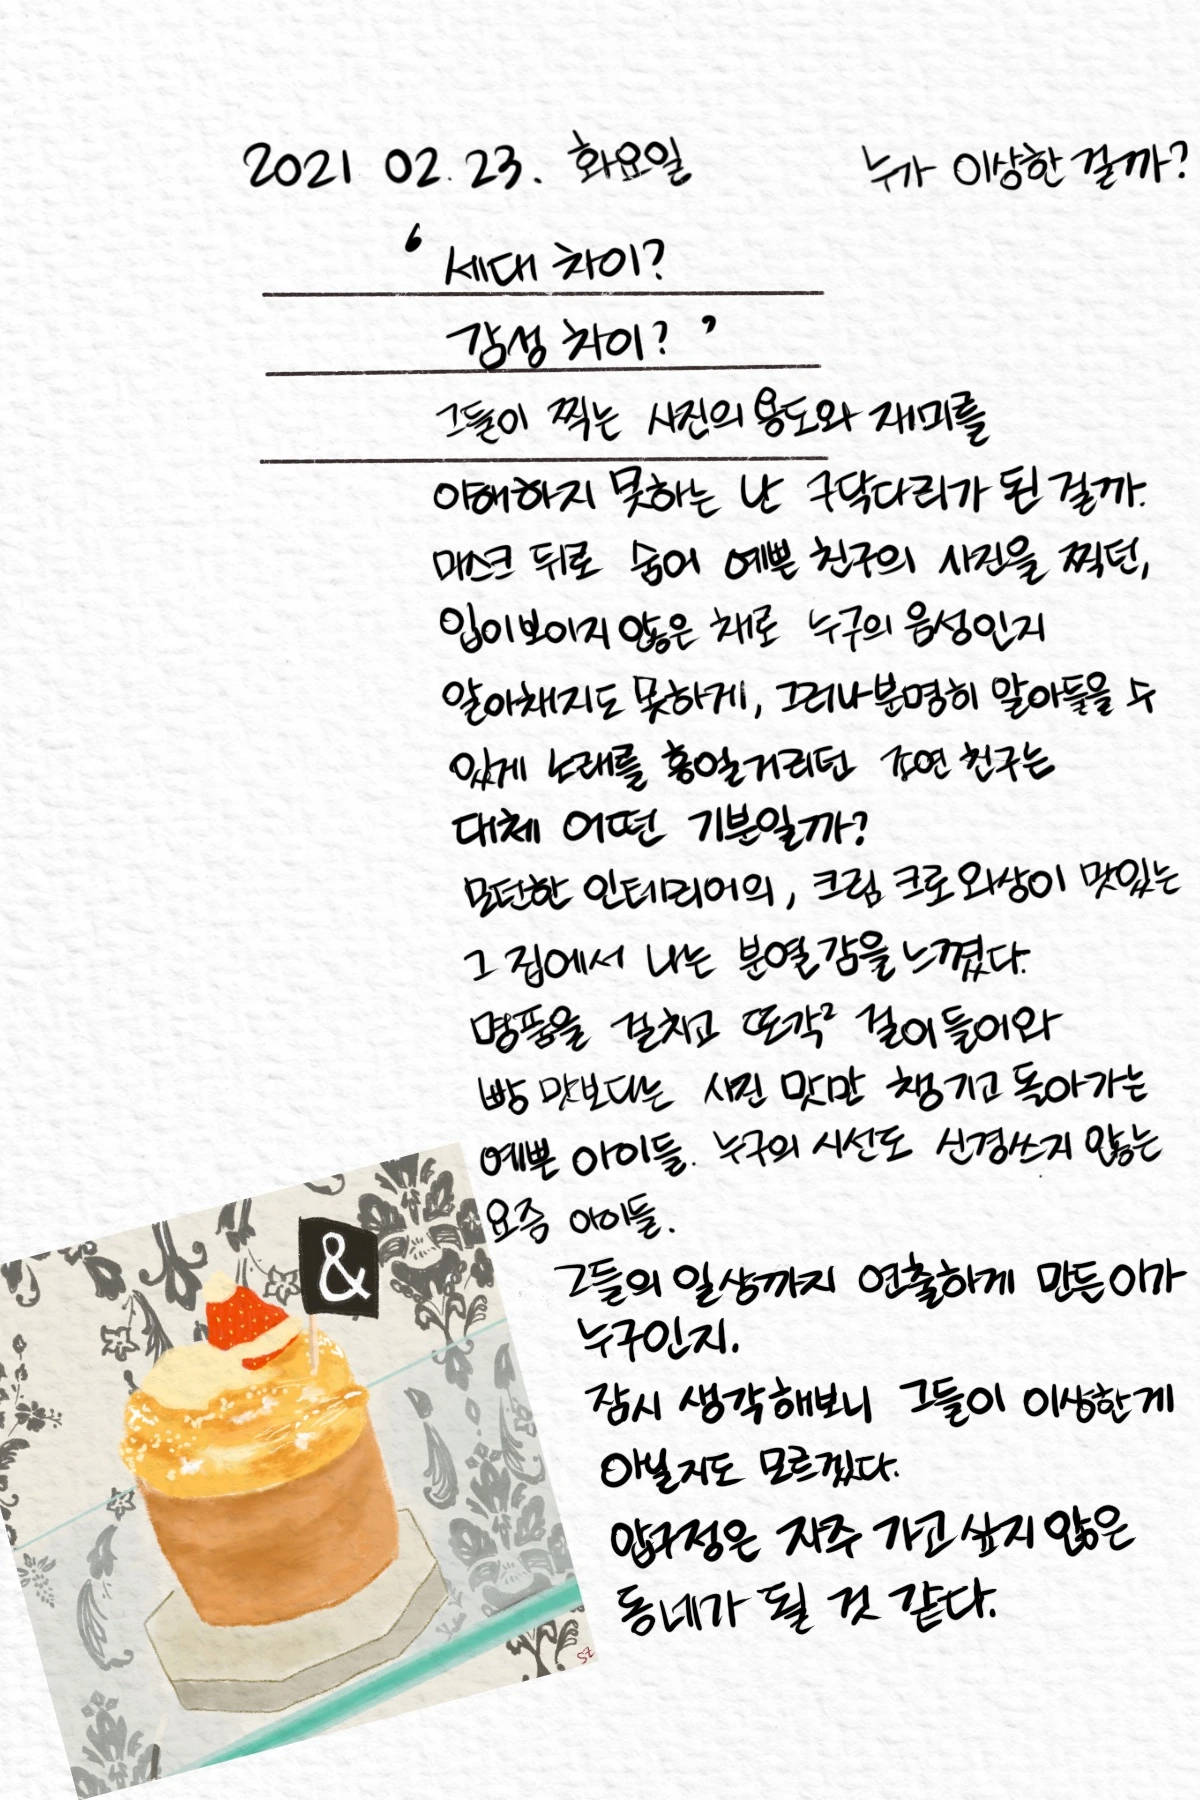 2021 02. 23. 화요일 누가 이상한 걸까?
‘ 세대 차이?
감성 차이? ’
그들이 찍는 사진의 용도와 재미를
이해하지 못하는 난 구닥다리가 된 걸까.
마스크 뒤로 숨어 예쁜 친구의 사진을 찍던,
입이 보이지 않은 채로 누구의 음성인지
알아채지도 못하게, 그러나 분명히 알아들을 수
있게 노래를 흥얼거리던 조연 친구는
대체 어떤 기분일까?
모던한 인테리어의, 크림 크로와상이 맛있는
그 집에서 나는 분열감을 느꼈다.
명품을 걸치고 또각² 걸어 들어와
빵 맛보다는 사진 맛만 챙기고 돌아가는
예쁜 아이들. 누구의 시선도 신경쓰지 않는
요즘 아이들.
그들의 일상까지 연출하게 만든 이가
누구인지.
잠시 생각해보니 그들이 이상한게
아닐지도 모르겠다.
압구정은 자주 가고 싶지 않은
동네가 될 것 같다.
&
SZ